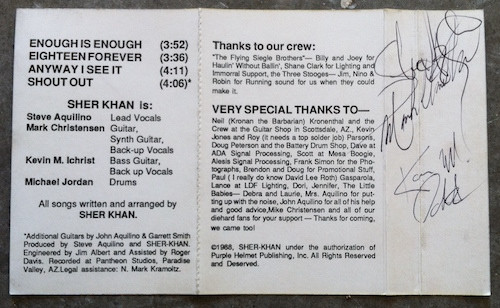 ENOUGH IS ENOUGH (3:52)
EIGHTEEN FOREVER (3:36)
ANYWAY I SEE IT (4:11)
SHOUT OUT (4:06)*
SHER KHAN is:
Steve Aquilino Lead Vocals
Mark Christensen Guitar,
Synth Guitar,
Back-up Vocals
Kevin M. Ichrist Bass Guitar,
Back-up Vocals
Michael Jordan Drums
All songs written and arranged by
SHER KHAN.
*Additional Guitars by John Aquilino & Garrett Smith
Produced by Steve Aquilino and SHER-KHAN.
Engineered by Jim Albert and Assisted by Roger
Davis. Recorded at Pantheon Studios, Paradise
Valley, AZ.Legal assistance: N. Mark Kramoltz.
Thanks to our crew:
"The Flying Siegle Brothers"— Billy and Joey for
Haulin' Without Ballin', Shane Clark for Lighting and
Immorral Support, the Three Stooges— Jim, Nino &
Robin for Running sound for us when they could
make it.
VERY SPECIAL THANKS TO—
Neil (Kronan the Barbarian) Kronenthal and the
Crew at the Guitar Shop in Scottsdale, AZ., Kevin
Jones and Roy (it needs a top solder job) Parsons,
Doug Peterson and the Battery Drum Shop, Dave at
ADA Signal Processing, Scott at Mesa Boogie,
Alesis Signal Processing, Frank Simon for the Pho-
tographs, Brendon and Doug for Promotional Stuff,
Paul ( I really do know David Lee Roth) Gasparola,
Lance at LDF Lighting, Dori, Jennifer, The Little
Babies— Debra and Laurie, Mrs. Aquilino for put-
ting up with the noise, John Aquilino for all of his help
and good advice,Mike Christensen and all of our
diehard fans for your support — Thanks for coming,
we came too!
©1988, SHER-KHAN under the authorization of
Purple Helmet Publishing, Inc. All Rights Reserved
and Deserved.